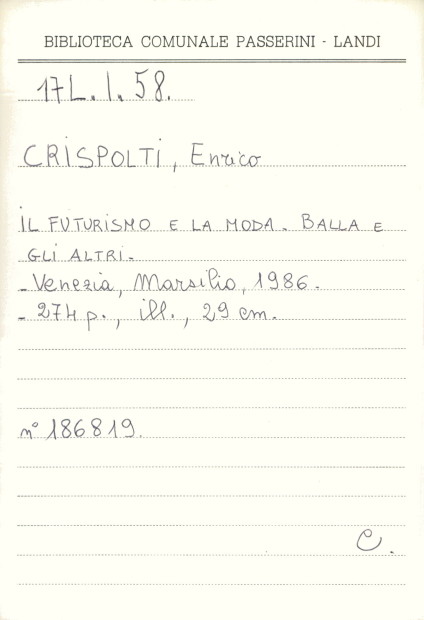 BIBLIOTECA COMUNALE PASSERINI - LANDI
17L.I.58.
CRISPOLTI, Enrico
IL FUTURISMO E LA MODA. BALLA E
GLI ALTRI.
- Venezia, Marsilio, 1986.
- 274 p., ill., 29 cm.
n° 186819.
C.